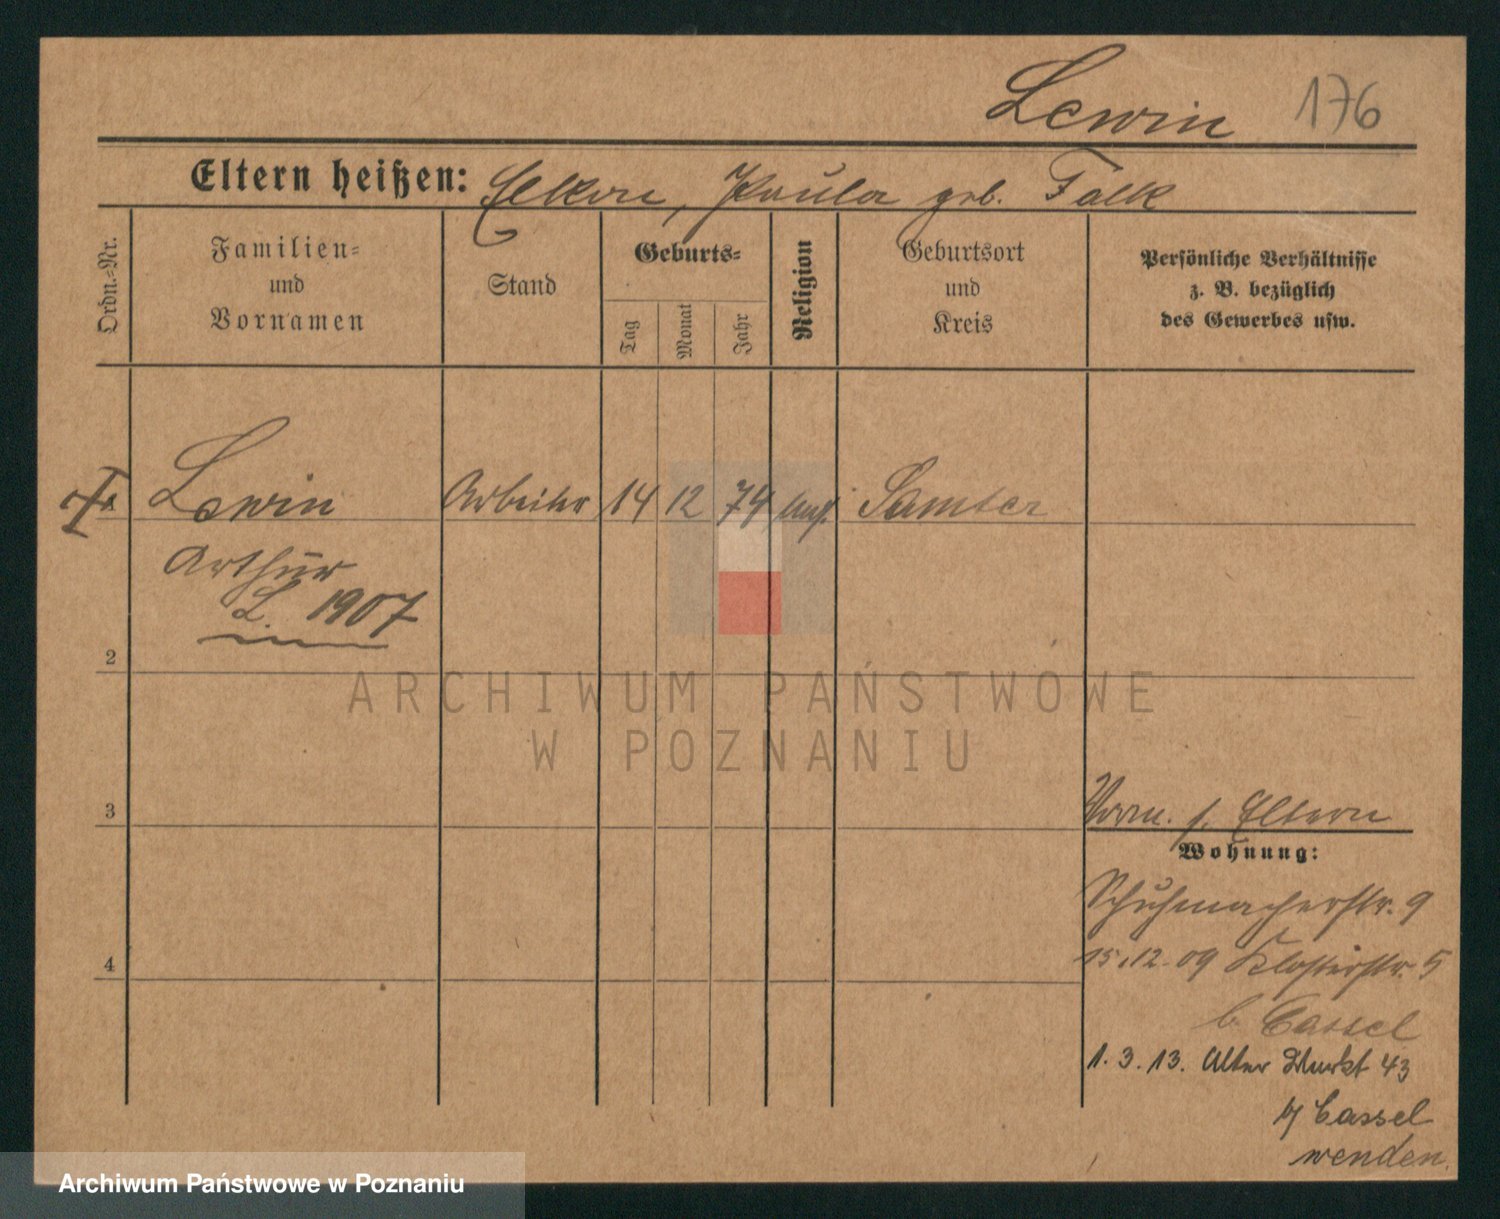 Lewin 176
Eltern heißen: Elkan, Paula geb. Falk
Ordn.-Nr.
Familien-
und
Vornamen
Stand
Geburts-
Tag
Monat
Jahr
Religion
Geburtsort
und
Kreis
Persönliche Verhältnisse
z. B. bezüglich
des Gewerbes usw.
Lewin Arbeiter 14 12 74 Samter
Arthur
L. 1907
2
3
4
ARCHIWUM PAŃSTWOWE
W POZNANIU
s. Eltern
Wohnung:
Schuhmacherstr. 9
15.12.09 Klosterstr. 5
b. Cassel
1.3.13. Alter Markt 43
b/ Cassel
wenden
Archiwum Państwowe w Poznaniu